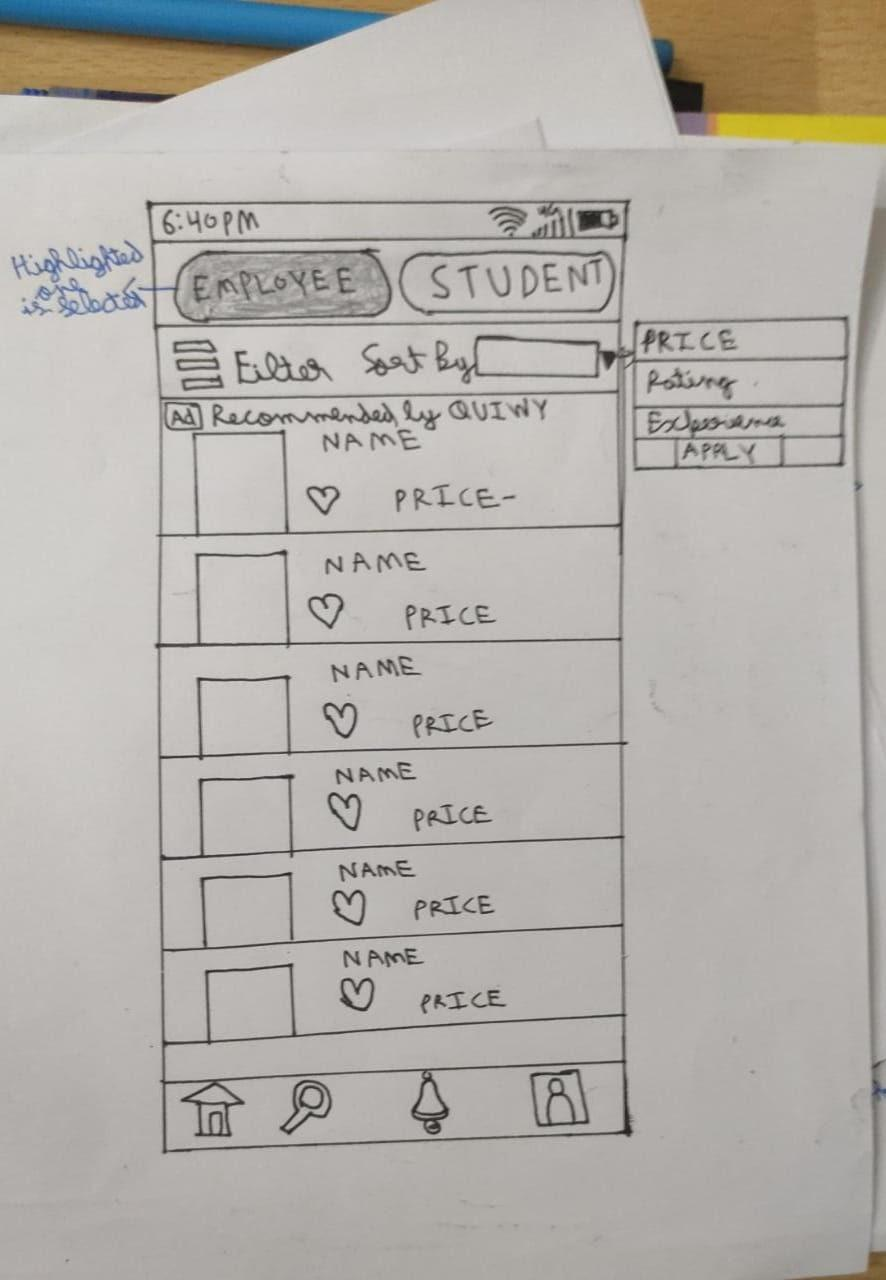 6:40PM
4G
Highlighted
one
is selected
EMPLOYEE
STUDENT
Filter Sort By
PRICE
Rating
Experience
APPLY
Ad Recommended by QUIWY
NAME
PRICE-
NAME
PRICE
NAME
PRICE
NAME
PRICE
NAME
PRICE
NAME
PRICE